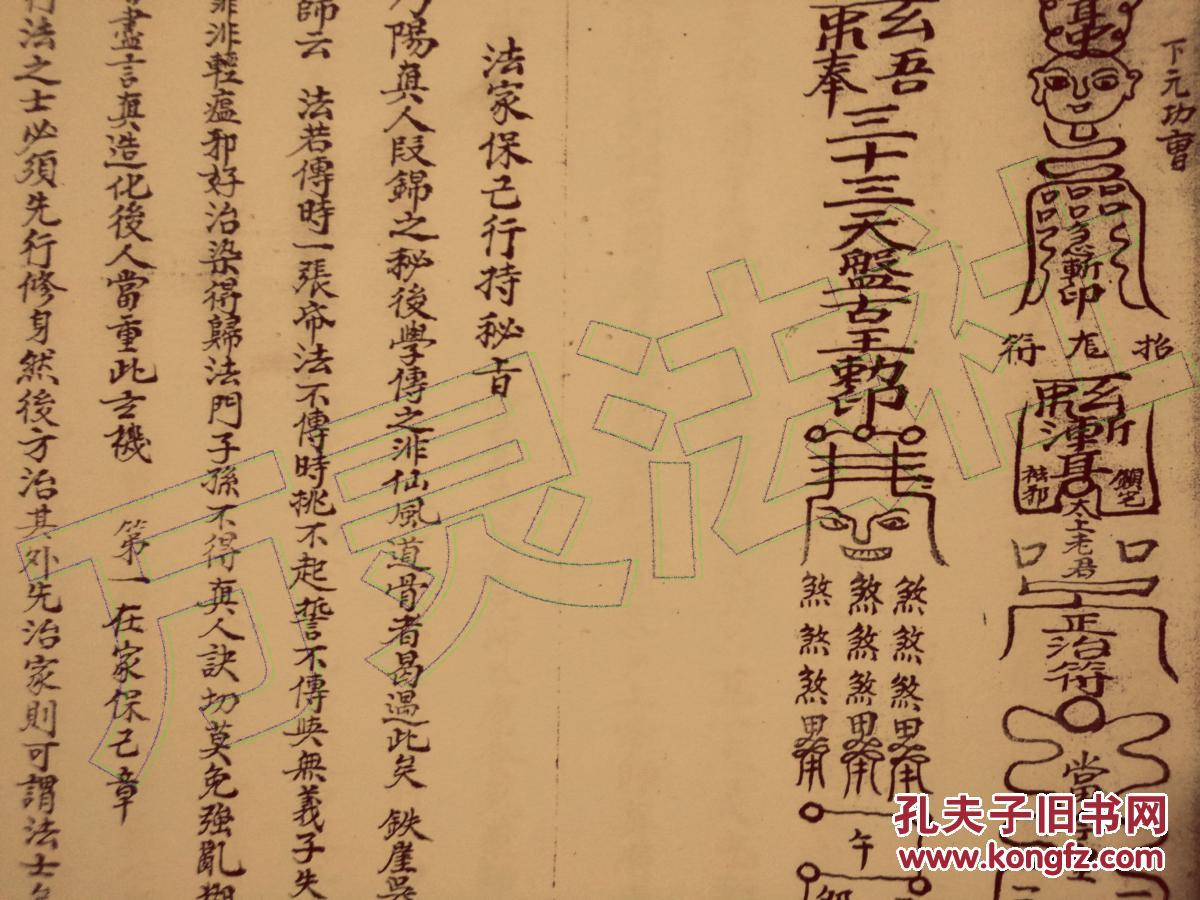 下元功曹
急斬印
招
符
斬
祛邪
太上老君
正治符
吾奉
三十三天盤古王勅印
煞煞煞
煞煞煞
煞煞煞
午
法家保己行持秘旨
陽真人段錦之秘後學傳之非仙風道骨者曷遇此矣 鉄崖
師云 法若傳時一張帋法不傳時挑不起誓不傳與無義子失
非輕瘟邪好治染得歸法門子孫不得真人訣切莫免強亂
盡言真造化後人當重此玄機 第一在家保己章
行法之士必須先行修身然後方治其外先治家則可謂法士
万灵法社
孔夫子旧书网
www.kongfz.com